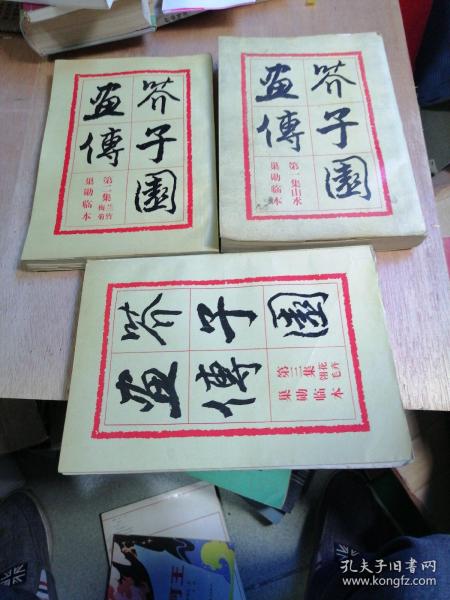 芥子園
畫傳
第二集兰竹梅菊
巢勋临本
芥子園
畫傳
第一集山水
巢勋临本
芥子園
畫傳
第三集花卉翎毛
巢勋临本
王
孔夫子旧书网
www.kongfz.com